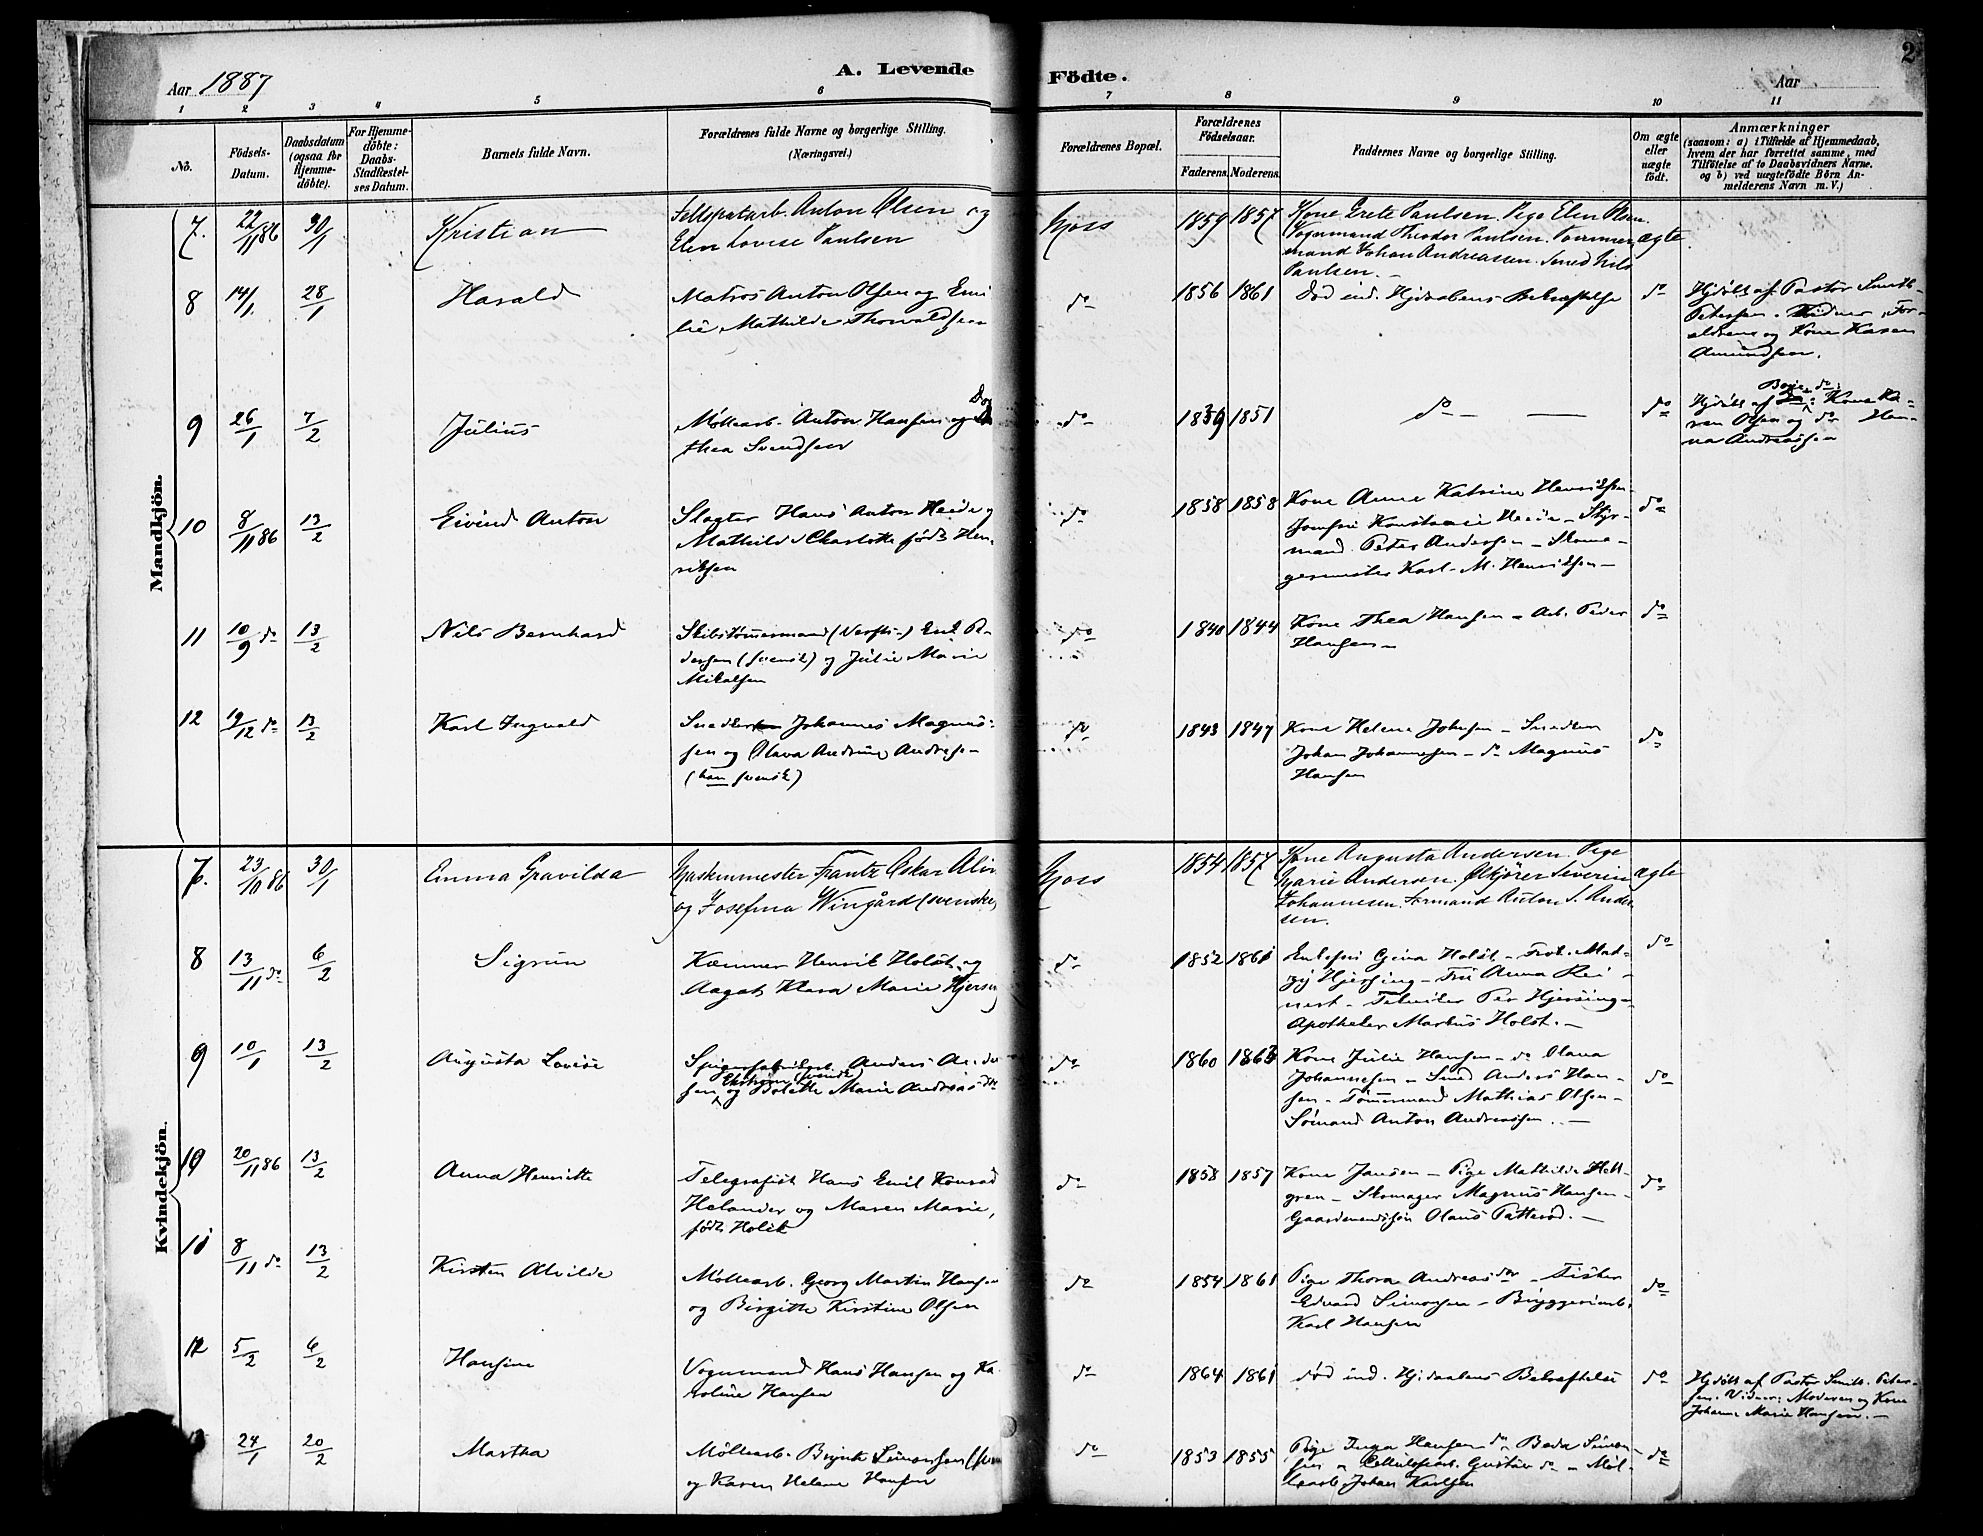 Aar 1887
A. Levende Födte.
2
Aar
1 2 3 4 5 6 7 8 9 10 11
No.
Födsels-Datum.
Daabsdatum (ogsaa for Hjemmedöbte).
For Hjemmedöbte: Daabs-Stadfæstelses Datum.
Barnets fulde Navn.
Forældrenes fulde Navne og borgerlige Stilling.
(Næringsvei.)
Forældrenes Bopæl.
Forældrenes Födselsaar.
Faderens. Moderens.
Faddernes Navne og borgerlige Stilling.
Om ægte eller uægte födt.
Anmærkninger
(saasom: a) i Tilfælde af Hjemmedaab, hvem der har forrettet samme, med Tilföielse af to Daabsvidners Navne. og b) ved uægtefödte Börn Anmelderens Navn m. V.)
Mandkjön.
7. 22/11 86 30/1 Kristian
Feltspatarb. Anton Olsen og
Elen Lovise Paulsen
Moss 1859 1857
Kone Grete Paulsen. Pige Elen Olsen.
Vognmand Theodor Paulsen. Tømmer
mand Johan Andreassen. Smed Nils
Paulsen.
ægte.
8 14/1. 28/1 Harald
Matros Anton Olsen og Emi
lie Mathilde Thorvaldsen
do 1856 1861
død ind. Hjdaabens Bekræftelse
do
Hjdøbt af Pastor Smith
Petersen. Vidner, For-
ældrene og Kone Karen
Amundsen.
9 26/1 7/2 Julius
Møllearb. Anton Hansen og Do
thea Svendsen
do 1859 1851
do
do
Hjdøbt af do: Kone Ka-
ren Olsen og do Han-
na Andreassen
10 8/11 86 13/2 Eivind Anton
Slagter Hans Anton Heide og
Mathilde Charlotte født Hen-
riksen
do 1858 1858
Kone Anne Katrine Henriksen
Jomfru Konstance Heide - Styr-
mand Peter Andersen - Skoma-
germester Karl M. Henriksen -
do
11 10/9 do 13/2 Nils Bernhard
Skibstømmermand (Verfts-) Emil Pe-
dersen (svensk) og Julie Marie
Mikalsen
do 1840 1844
Kone Thea Hansen - Arb. Peder
Hansen -
do
12 19/12 do 13/2 Karl Ingvald
Snedker Johannes Magnus-
sen og Olava Andrine Andresen -
(han svensk)
do 1843 1847
Kone Helene Johnsen - Snedker
Johan Johannessen - do Magnus
Hansen
do
Kvindekjön.
7. 23/10 86 30/1 Emma Gravilda
Maskinmester Frantz Oskar Alin
og Josefina Wingård (svenske)
Moss 1854 1857
Kone Augusta Andersen. Pige
Marie Andersen. Ølkjører Severin
Johannesen. Formand Anton S. Ander
sen.
ægte
8 13/11 do 6/2 Sigrun
Kæmner Henrik Holst og
Aagot Klara Marie Hjersing
do 1852 1861
Enkefru Gina Holst - Frøk. Mag-
gy Hjersing - Fru Anna Rei-
nert - Per Hjersing -
Apotheker Markus Holst. -
do
9 10/1 13/2 Augusta Lovise
Spigerfabrikarb. Anders Ander-
sen Ekström (svensk) og Bolette Marie Andreasdtr
do 1860 1863
Kone Julie Hansen - do Olava
Johannesen - Smed Anders Han-
sen - Tømmermand Mathias Olsen -
Sømand Anton Andreassen. -
do
10 20/11 86 13/2 Anna Henriette
Telegrafist Hans Emil Konrad
Helander og Maren Marie,
født Holst
do 1858 1857
Kone Jansen - Pige Mathilde Hell-
gren - Skomager Magnus Hansen -
Gaardmandssøn Olaus Patterød. -
do
11 8/11 do 13/2 Kirsten Alvilde
Møllearb. Georg Martin Hansen
og Birgitte Kirstine Olsen
do 1854 1861
Pige Thora Andreasdtr - Fisker
Edvard Simonsen - Bryggeriarb.
Karl Hansen
do
12 5/2 6/2 Hansine
Vognmand Hans Hansen og Ka
roline Hansen
do 1864 1861
død ind. Hjdaabens Bekræftelse
do
Hjdøbt af Pastor Smith Peter-
sen. Vidner: Moderen og Kone
Johanne Marie Hansen. -
24/1 20/2 Martha
Møllearb. Simonsen
og Karen Helene Hansen
do 1853 1855
Pige Inga Hansen do Beda Simon-
sen - Cellulosearb. Gustav do - Møl-
learb. Johan Karlsen
do